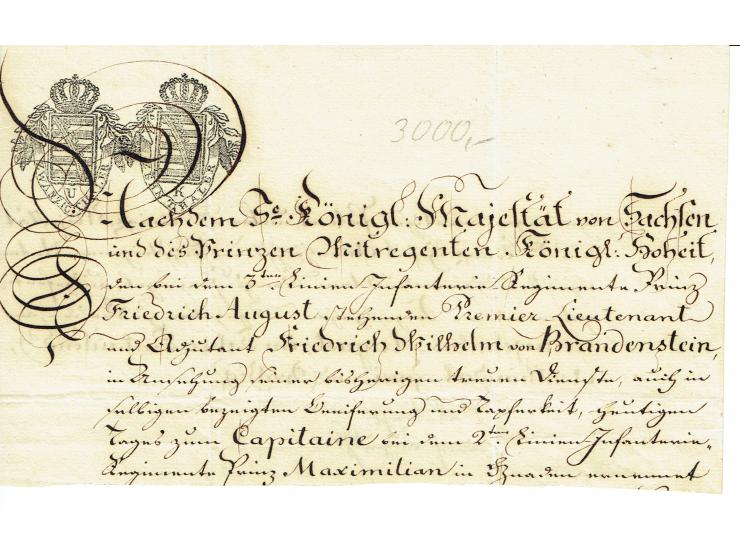 3000,-
Nachdem Se. Königl: Majestät von Sachsen
und des Prinzen Mitregenten Königl: Hoheit,
den bei dem 3ten Linien Infanterie Regimente Prinz
Friedrich August stehenden Premier Lieutenant
und Adjutant Friedrich Wilhelm von Brandenstein,
in Ansehung seiner bisherigen treuen Dienste, auch in
selbigen bezeigten Beeiferung und Tapferkeit, heutigen
Tages zum Capitaine bei dem 2ten Linien Infanterie-
Regimente Prinz Maximilian in Gnaden ernennet